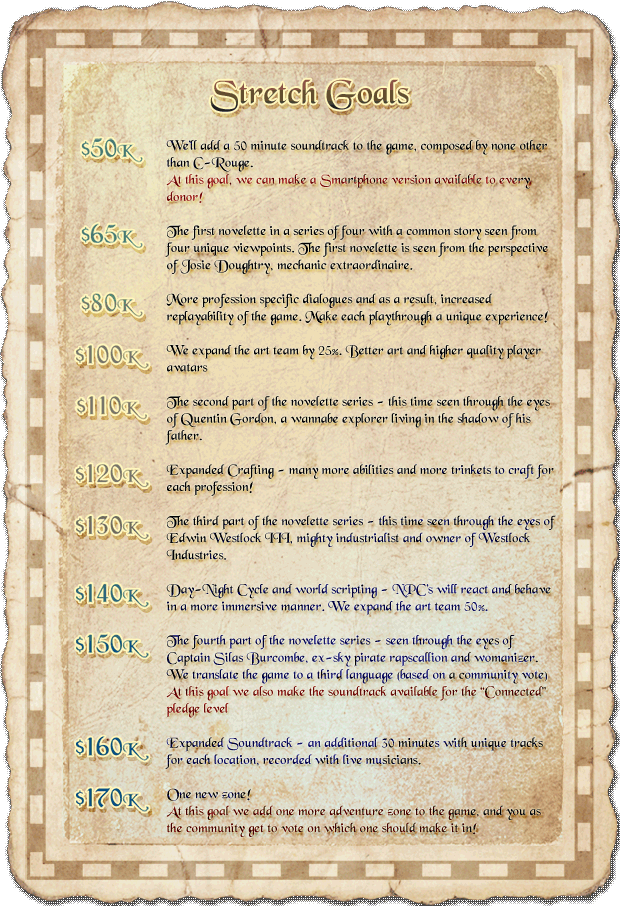 Stretch Goals
$50K
We'll add a 50 minute soundtrack to the game, composed by none other
than C-Rouge.
At this goal, we can make a Smartphone version available to every
donor!
$65K
The first novelette in a series of four with a common story seen from
four unique viewpoints. The first novelette is seen from the perspective
of Josie Doughtry, mechanic extraordinaire.
$80K
More profession specific dialogues and as a result, increased
replayability of the game. Make each playthrough a unique experience!
$100K
We expand the art team by 25%. Better art and higher quality player
avatars
$110K
The second part of the novelette series - this time seen through the eyes
of Quentin Gordon, a wannabe explorer living in the shadow of his
father.
$120K
Expanded Crafting - many more abilities and more trinkets to craft for
each profession!
$130K
The third part of the novelette series - this time seen through the eyes of
Edwin Westlock III, mighty industrialist and owner of Westlock
Industries.
$140K
Day-Night Cycle and world scripting - NPC's will react and behave
in a more immersive manner. We expand the art team 50%.
$150K
The fourth part of the novelette series - seen through the eyes of
Captain Silas Burcombe, ex-sky pirate rapscallion and womanizer.
We translate the game to a third language (based on a community vote)
At this goal we also make the soundtrack available for the "Connected"
pledge level
$160K
Expanded Soundtrack - an additional 30 minutes with unique tracks
for each location, recorded with live musicians.
$170K
One new zone!
At this goal we add one more adventure zone to the game, and you as
the community get to vote on which one should make it in!